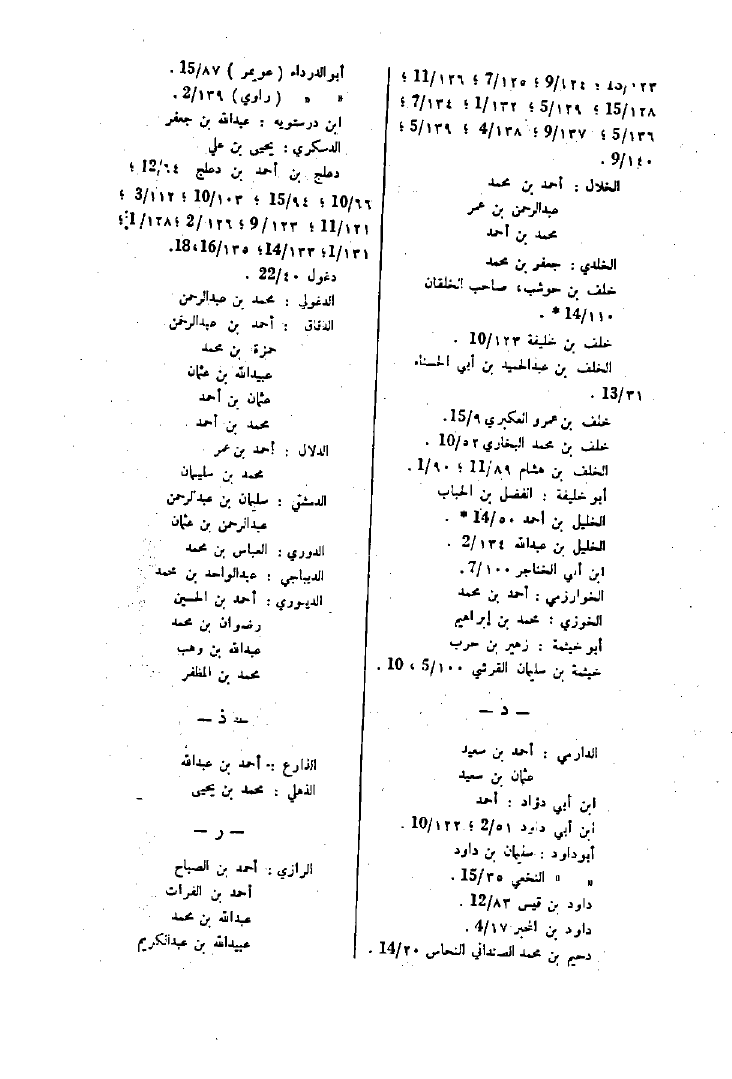 13/١٢٣ ؛ 9/١٢٤ ؛ 7/١٢٥ ؛ 11/١٢٦ ؛
15/١٢٨ ؛ 5/١٢٩ ؛ 1/١٣٢ ؛ 7/١٣٤ ؛
5/١٣٦ ؛ 9/١٣٧ ؛ 4/١٣٨ ؛ 5/١٣٩ ؛
9/١٤٠ .
الخلال : أحمد بن محمد
عبدالرحمن بن عمر
محمد بن أحمد
الخلدي : جعفر بن محمد
خلف بن حوشب، صاحب الخلقان
14/١١٠ * .
خلف بن خليفة 10/١٢٣ .
الخلف بن عبدالحميد بن أبي الحسناء
13/٣١ .
خلف بن عمرو العكبري 15/٩.
خلف بن محمد البخاري 10/٥٢ .
الخلف بن هشام 11/٨٩ ؛ 1/٩٠ .
أبو خليفة : الفضل بن الحباب
الخليل بن أحمد 14/٥٠ * .
الخليل بن عبدالله 2/١٣٤ .
ابن أبي الخناجر 7/١٠٠ .
الخوارزمي : أحمد بن محمد
الخوزي : محمد بن إبراهيم
أبو خيثمة : زهير بن حرب
خيثمة بن سليمان القرشي 5/١٠٠ ، 10 .
— د —
الدارمي : أحمد بن سعيد
عثمان بن سعيد
ابن أبي دؤاد : أحمد
ابن أبي داود 2/٥١ ؛ 10/١٢٢ .
أبوداود : سليمان بن داود
» » النخعي 15/٣٥ .
داود بن قيس 12/٨٣ .
داود بن المحبر 4/١٧ .
دحيم بن محمد الصنداني النحاس 14/٢٠ .
أبوالدرداء ( عويمر ) 15/٨٧ .
» » ( راوي) 2/١٣٩ .
ابن درستويه : عبدالله بن جعفر
الدسكري : يحيى بن علي
دعلج بن أحمد بن دعلج 12/٦٤ ؛
10/٦٦ ؛ 15/٩٤ ؛ 10/١٠٣ ؛ 3/١١٢ ؛
11/١٢١ ؛ 9/١٢٣ ؛ 2/١٢٦ ؛ 1/١٢٨ ؛
1/١٣١ ؛ 14/١٣٣ ؛ 16/١٣٥ ، 18.
دغول 22/٤٠ .
الدغولي : محمد بن عبدالرحمن
الدقاق : أحمد بن عبدالرحمن
حمزة بن محمد
عبيدالله بن عثمان
عثمان بن أحمد
محمد بن أحمد
الدلال : أحمد بن عمر
محمد بن سليمان
الدمشقي : سليمان بن عبدالرحمن
عبدالرحمن بن عثمان
الدوري : العباس بن محمد
الديباجي : عبدالواحد بن محمد
الدينوري : أحمد بن الحسين
رضوان بن محمد
عبدالله بن وهب
محمد بن المظفر
— ذ —
الذارع : أحمد بن عبدالله
الذهلي : محمد بن يحيى
— ر —
الرازي : أحمد بن الصباح
أحمد بن الفرات
عبدالله بن محمد
عبيدالله بن عبدالكريم